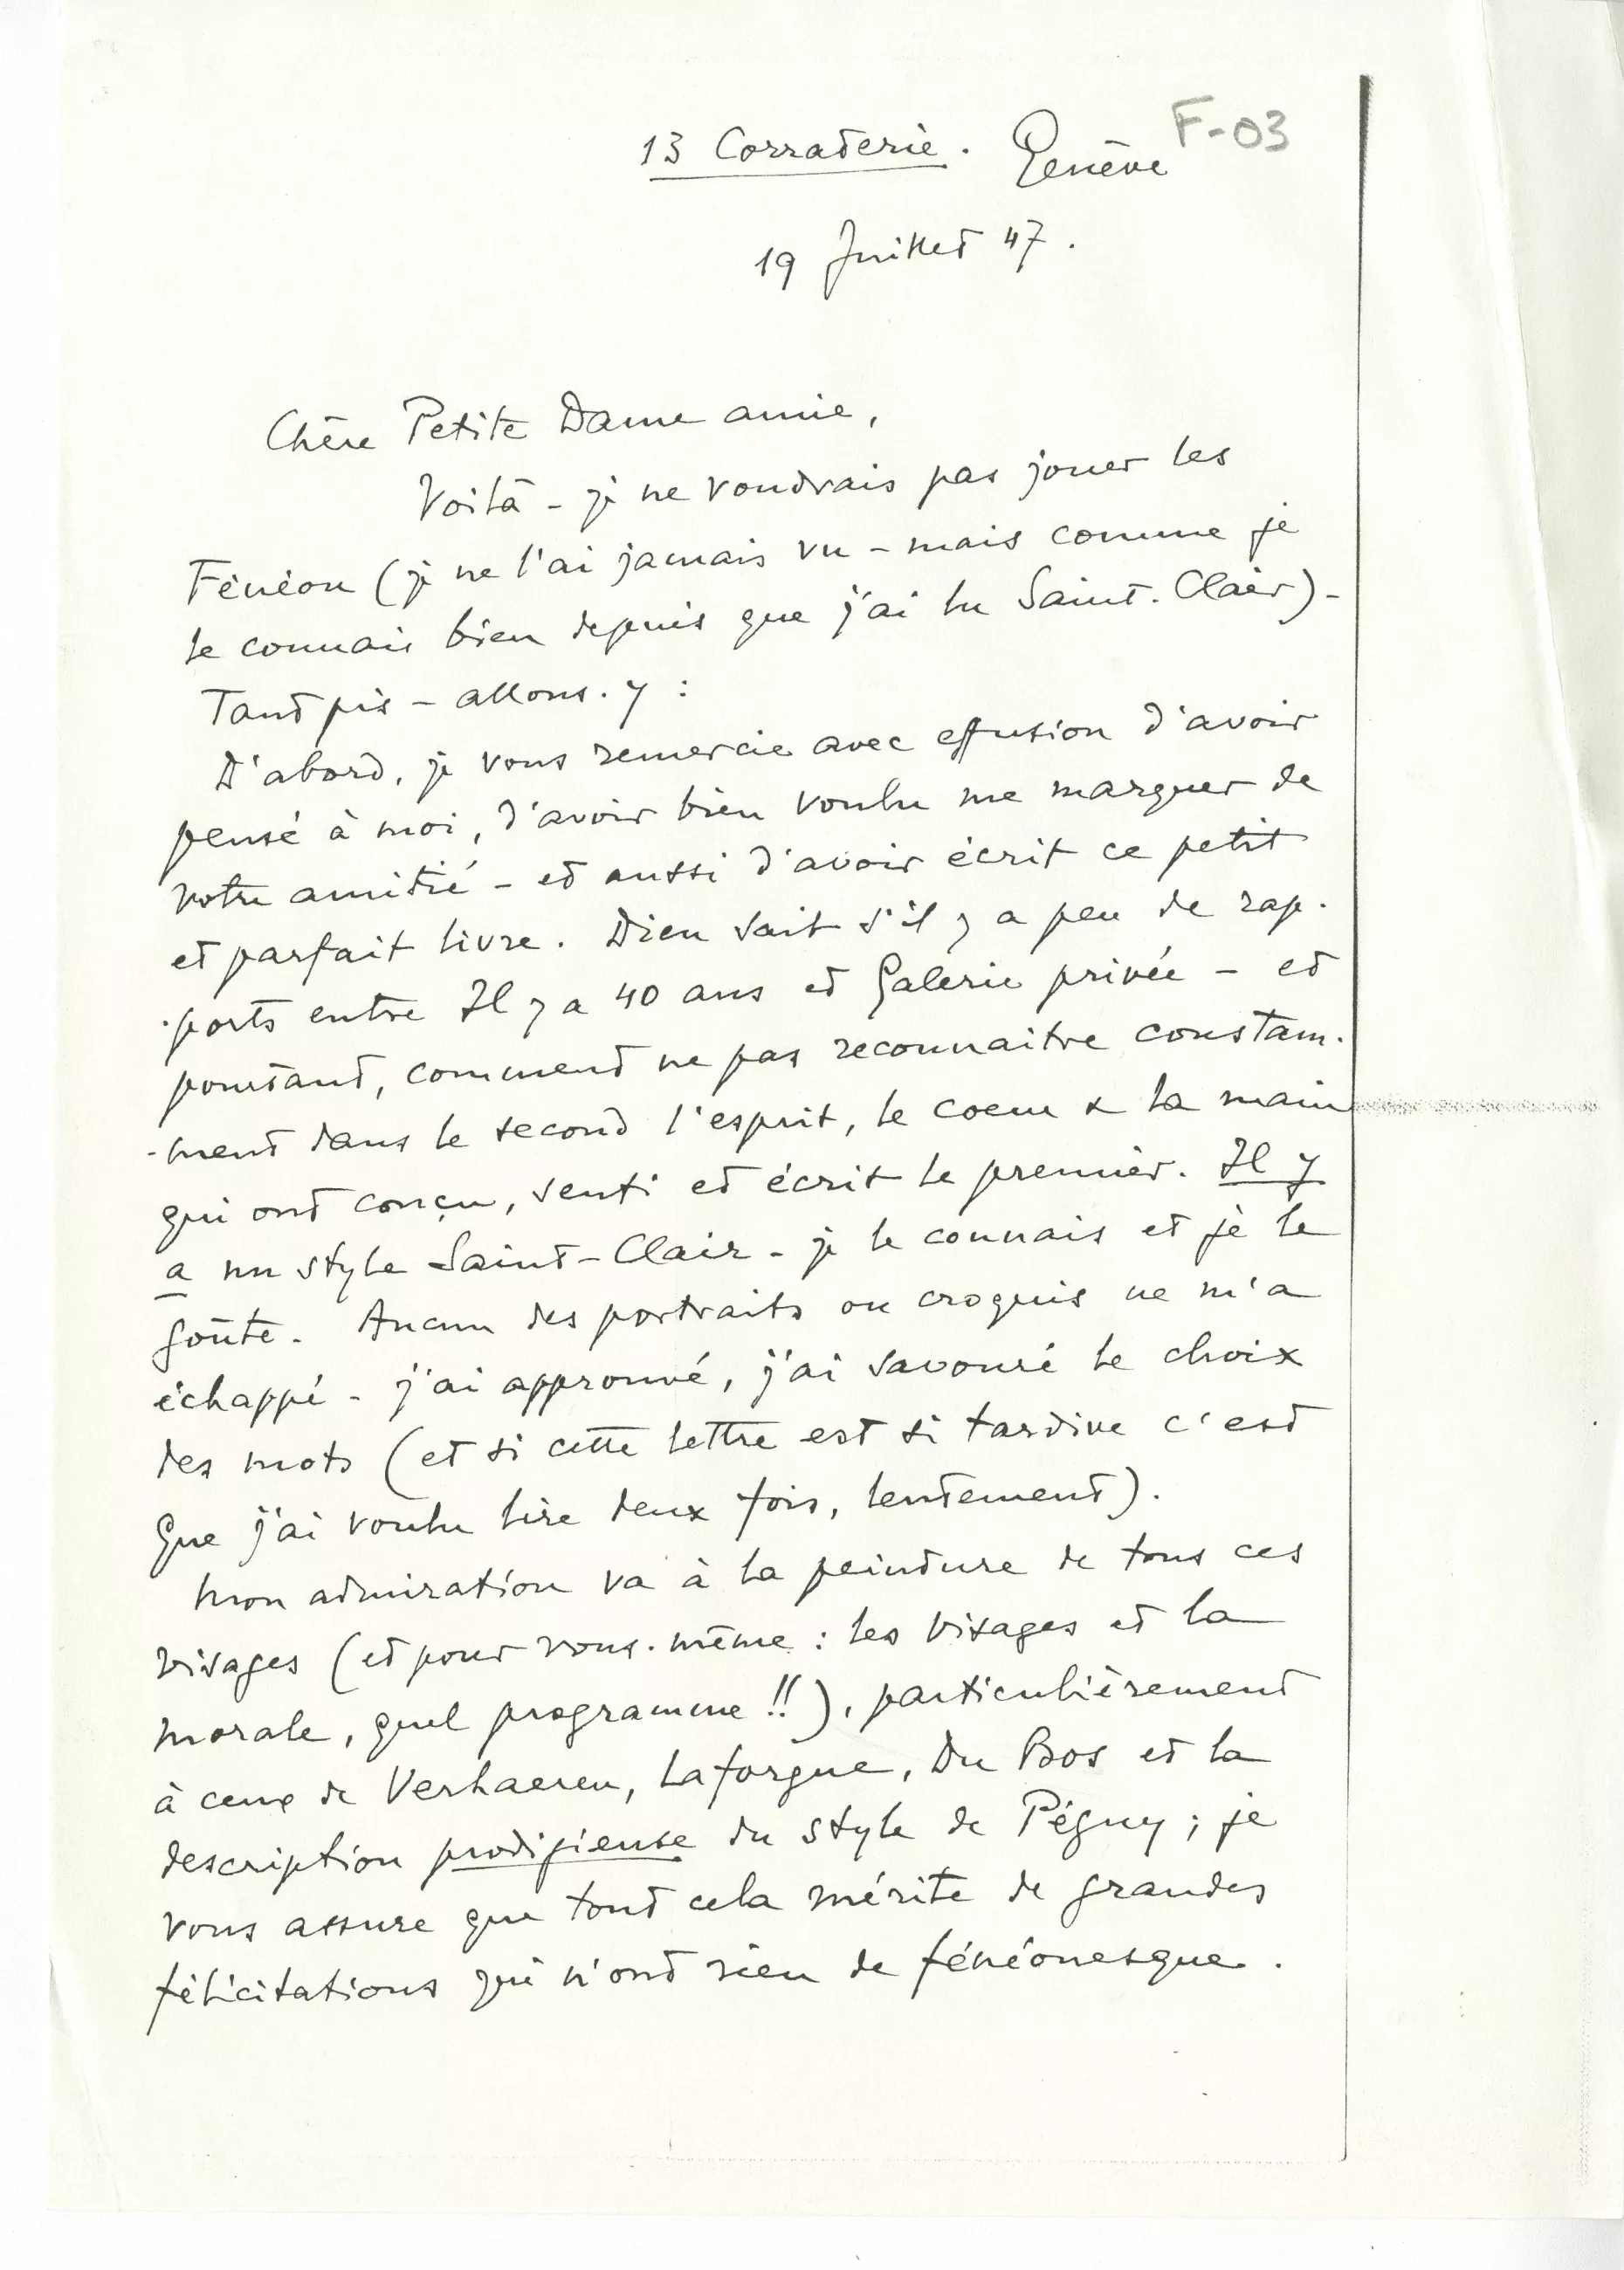 13 Corraterie. Genève
F-03
19 Juillet 47.
Chère Petite Dame amie,
Voilà - je ne voudrais pas jouer les
Fénéon (je ne l'ai jamais vu - mais comme je
le connais bien depuis que j'ai lu Saint-Clair) -
Tant pis - allons-y :
D'abord, je vous remercie avec effusion d'avoir
pensé à moi, d'avoir bien voulu me marquer de
votre amitié - et aussi d'avoir écrit ce petit
et parfait livre. Dieu sait s'il y a peu de rap-
-ports entre Il y a 40 ans et Galerie privée - et
pourtant, comment ne pas reconnaitre constam-
-ment dans le second l'esprit, le coeur & la main
qui ont conçu, senti et écrit le premier. Il y
a un style Saint-Clair - je le connais et je le
goûte. Aucun des portraits ou croquis ne m'a
échappé - j'ai approuvé, j'ai savouré le choix
des mots (et si cette lettre est si tardive c'est
que j'ai voulu lire deux fois, lentement).
Mon admiration va à la peinture de tous ces
visages (et pour vous-même : les visages et la
morale, quel programme !!), particulièrement
à ceux de Verhaeren, Laforgue, Du Bos et la
description prodigieuse du style de Péguy ; je
vous assure que tout cela mérite de grandes
félicitations qui n'ont rien de fénéonesque.